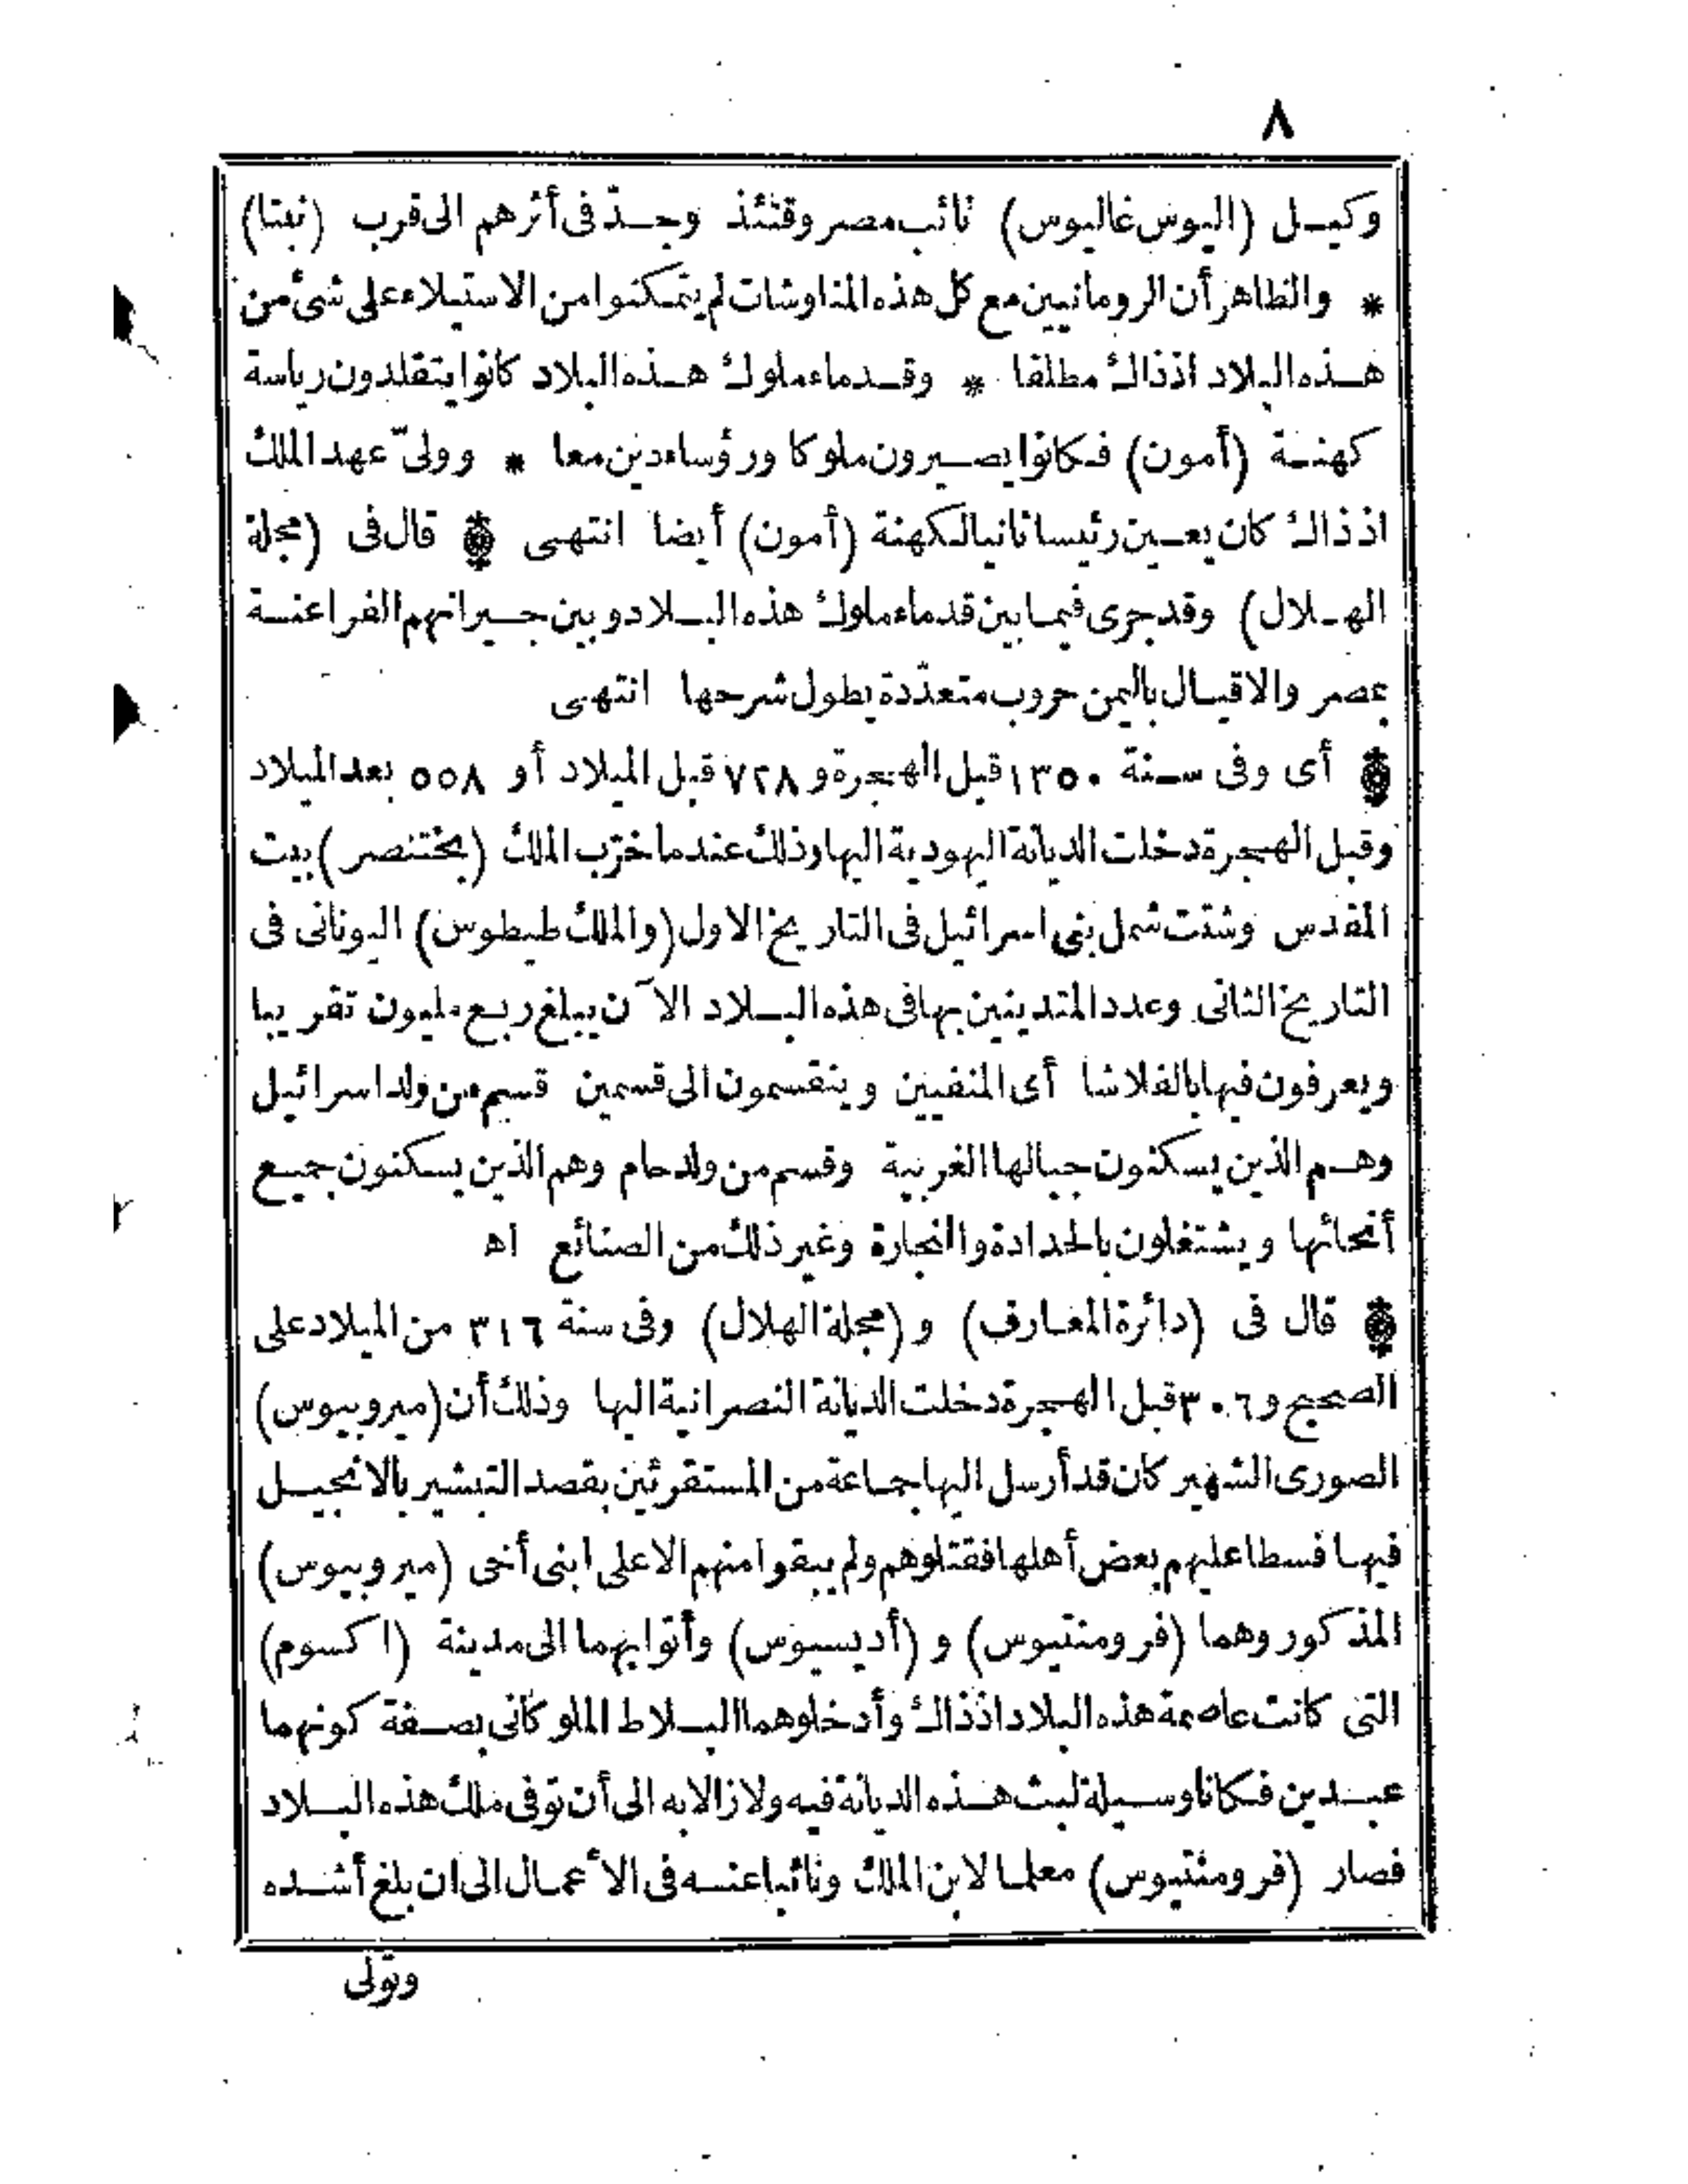 ٨
وكيل (اليوس غاليوس) نائب مصر وقتئذ وجدّ فى أثرهم الى قرب (نبتا)
* والظاهر أن الرومانيين مع كل هذه المناوشات لم يتمكنوا من الاستيلاء على شئ من
هذه البلاد اذذاك مطلقا * وقدماء ملوك هذه البلاد كانوا يتقلدون رياسة
كهنة (أمون) فكانوا يصيرون ملوكا ورؤساء دين معا * وولىّ عهد الملك
اذذاك كان يعين رئيسا ثانيا لكهنة (أمون) أيضا انتهى قال فى (مجلة
الهلال) وقد جرى فيما بين قدماء ملوك هذه البلاد وبين جيرانهم الفراعنة
بمصر والاقيال باليمن حروب متعدّدة يطول شرحها انتهى
أى وفى سنة ١٣٥٠ قبل الهجرة و ٧٢٨ قبل الميلاد أو ٥٥٨ بعد الميلاد
وقبل الهجرة دخلت الديانة اليهودية اليها وذلك عندما خرّب الملك (بختنصر) بيت
المقدس وشتت شمل بنى اسرائيل فى التاريخ الاول (والملك طيطوس) اليونانى فى
التاريخ الثانى وعدد المتدينين بها فى هذه البلاد الآن يبلغ ربع مليون تقريبا
ويعرفون فيها بالفلاشا أى المنفيين وينقسمون الى قسمين قسم من ولد اسرائيل
وهم الذين يسكنون جبالها الغربية وقسم من ولد حام وهم الذين يسكنون جميع
أنحائها ويشتغلون بالحدادة والنجارة وغير ذلك من الصنائع اه
قال فى (دائرة المعارف) و (مجلة الهلال) وفى سنة ٣١٦ من الميلاد على
الصحيح و ٣٠٦ قبل الهجرة دخلت الديانة النصرانية اليها وذلك أن (ميروبيوس)
الصورى الشهير كان قد أرسل اليها جماعة من المستقرئين بقصد التبشير بالانجيل
فيها فسطا عليهم بعض أهلها فقتلوهم ولم يبقوا منهم الا على ابنى أخى (ميروبيوس)
المذكور وهما (فرومنتيوس) و (أديسيوس) وأتوا بهما الى مدينة (اكسوم)
التى كانت عاصمة هذه البلاد اذذاك وأدخلوهما البلاط الملوكانى بصفة كونهما
عبدين فكانا وسيلة لبث هذه الديانة فيه ولا زالا به الى أن توفى ملك هذه البلاد
فصار (فرومنتيوس) معلما لابن الملك ونائبا عنه فى الأعمال الى ان بلغ أشده
وتولى